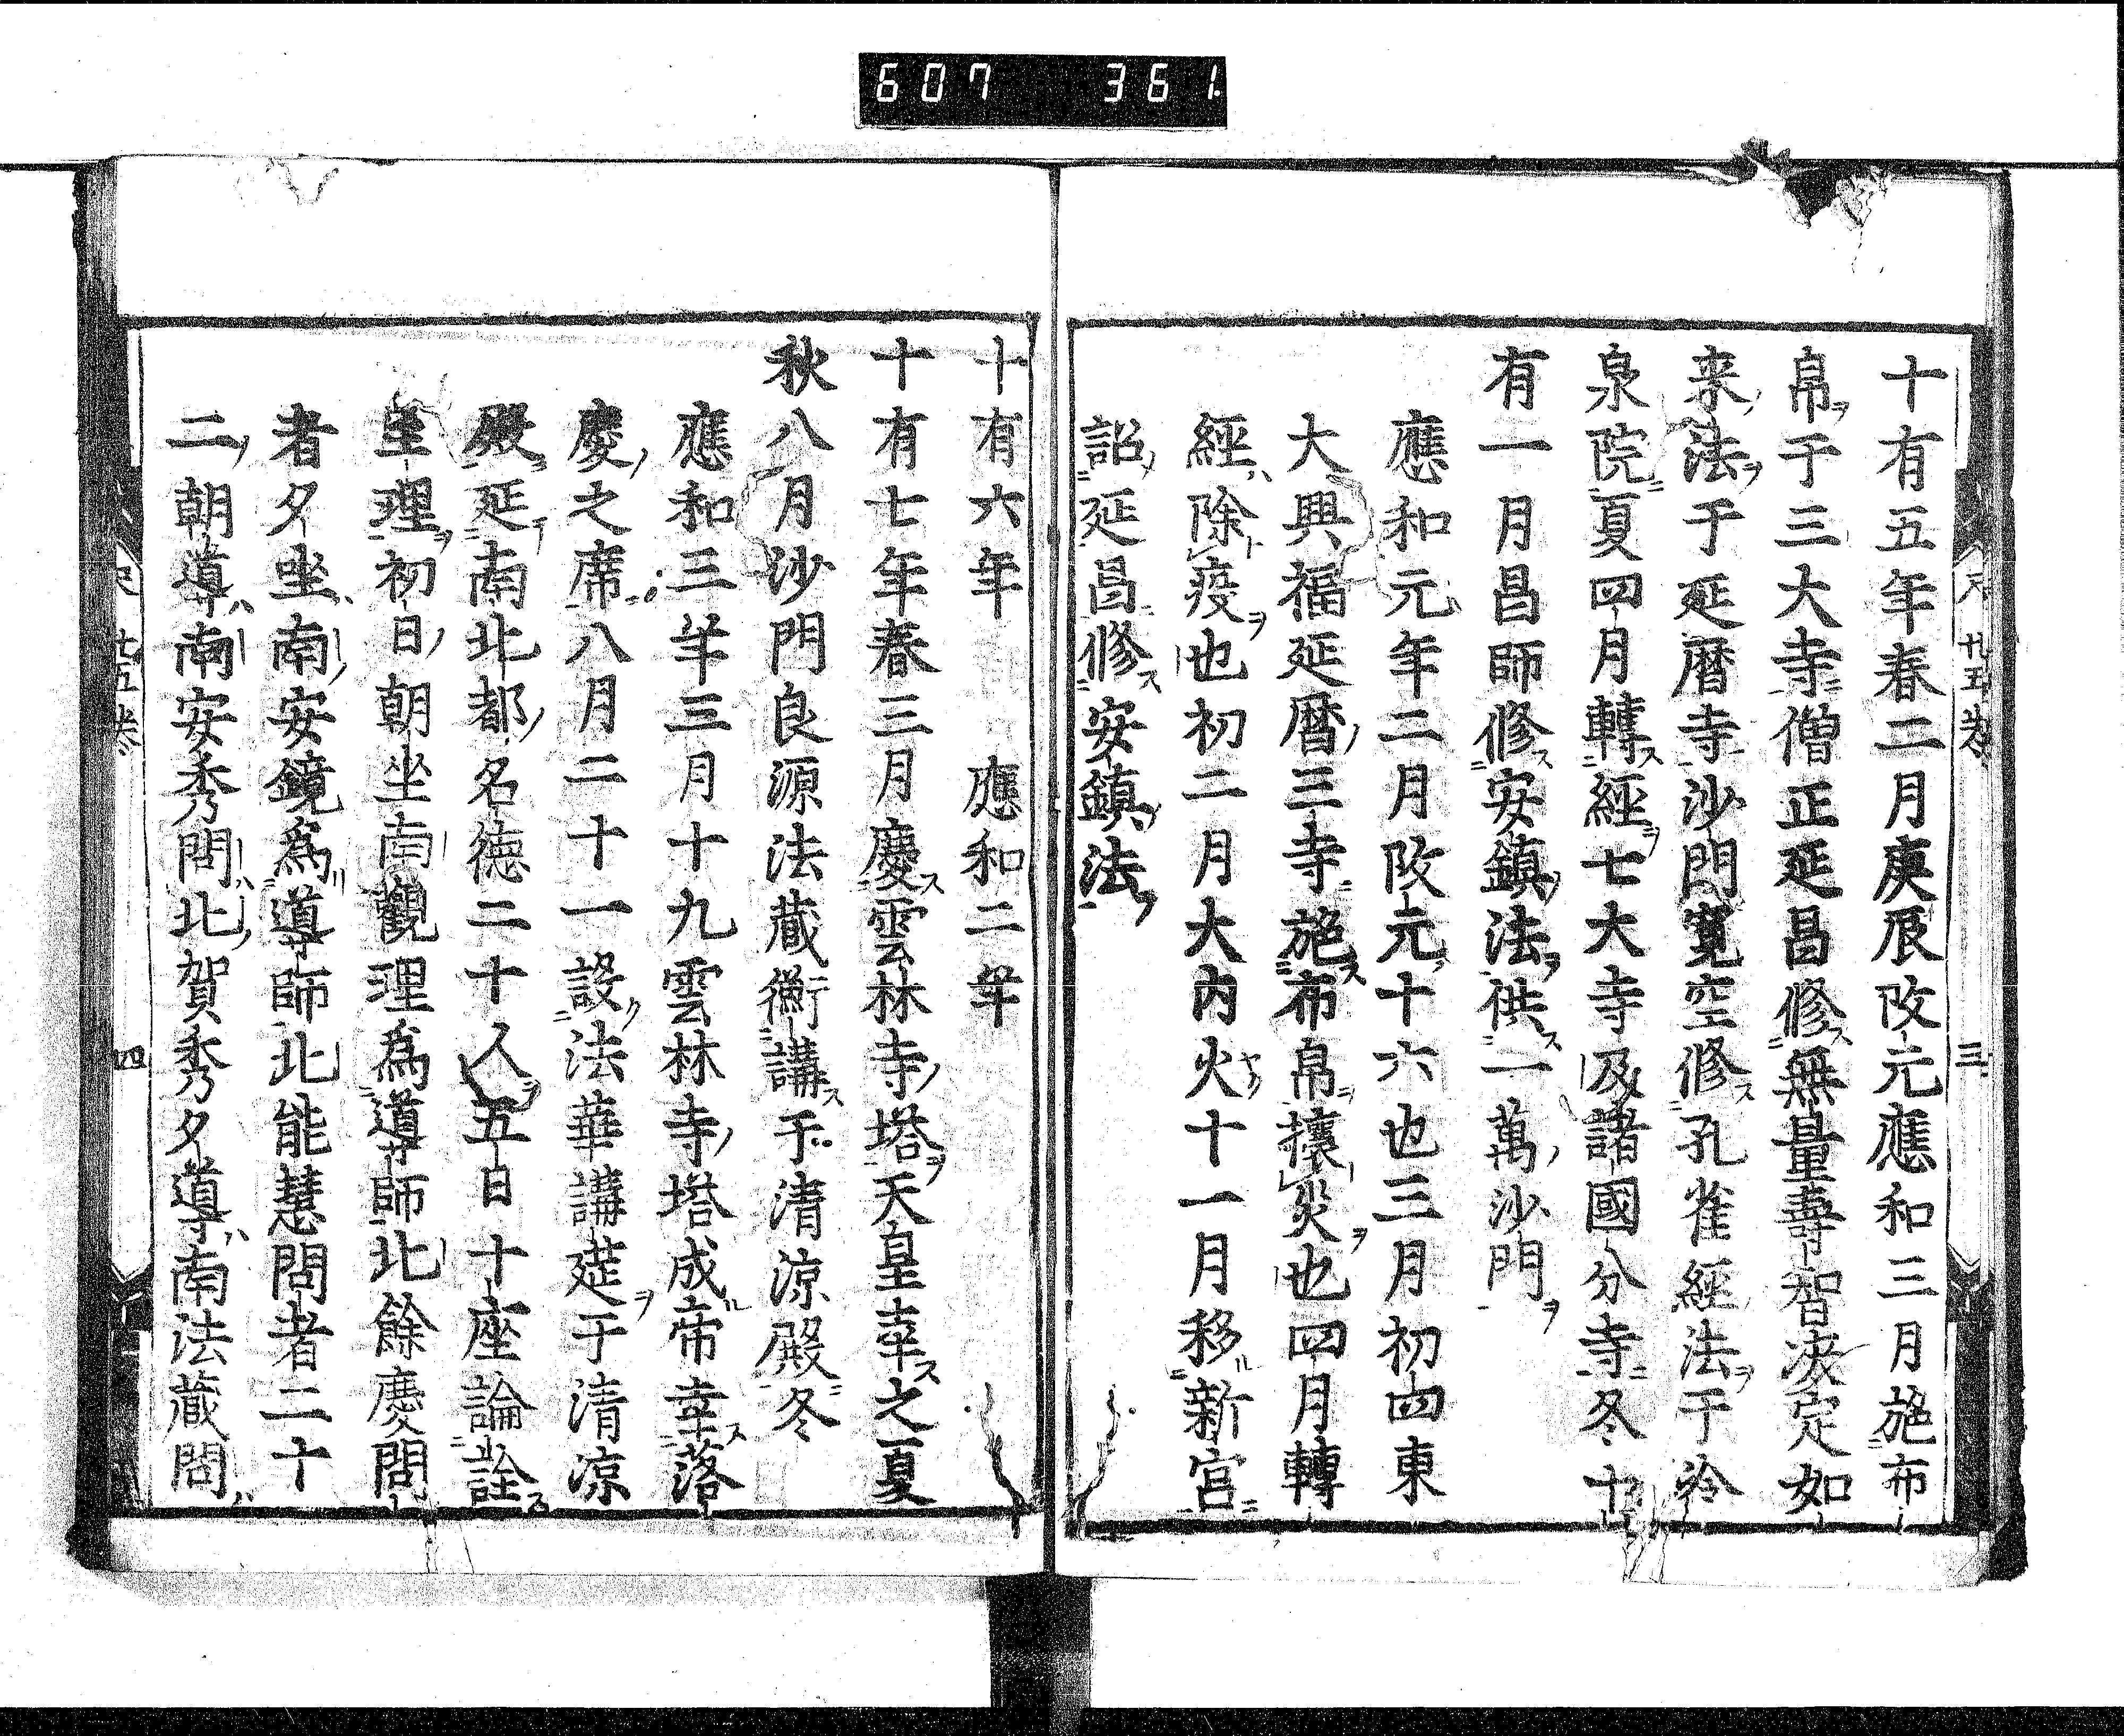 607 361.
十有五年春二月庚辰改元應和三月施布
帛于三大寺僧正延昌修無量壽智决定如
来法于延曆寺沙門寛空修孔雀經法于冷
泉院夏四月轉經七大寺及諸國分寺冬十
有一月昌師修安鎮法供一萬沙門
應和元年二月改元十六也三月初四東
大興福延曆三寺施布帛攘災也四月轉
經除疫也初二月大内火十一月移新宮
詔延昌修安鎮法
十有六年 應和二年
十有七年春三月慶雲林寺塔天皇幸之夏
秋八月沙門良源法藏衡講于清涼殿冬
應和三年三月十九雲林寺塔成帝幸落
慶之席八月二十一設法華講莚于清凉
殿延南北都名德二十人五日十座論詮
至理初日朝坐南觀理爲導師北餘慶問
者夕坐南安鏡爲導師北能慧問者二十
二朝導南安秀問北賀秀夕導南法藏問
廿五卷 三
廿五卷 四